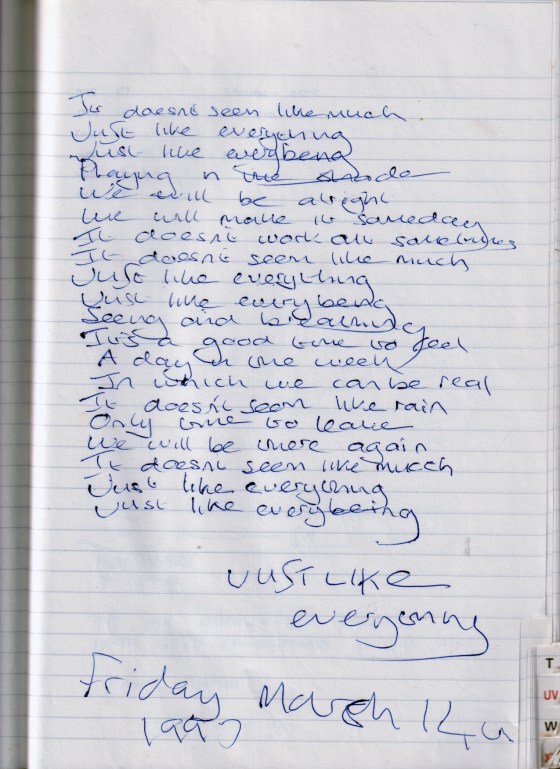 It doesnt seem like much
Just like everything
Just like everybeing
Playing n the shade
We will be alright
We will make it someday
It doesn't work all sometimes
It doesn't seem like much
Just like everything
Just like everybeing
Seeing and breathing
It's a good time to feel
A day in the week
In which we can be real
It doesn't seem like rain
Only time to leave
We will be there again
It doesnt seem like much
Just like everything
Just like everybeing
JUST LIKE
everything
Friday March 14th
1997
T
UV
W